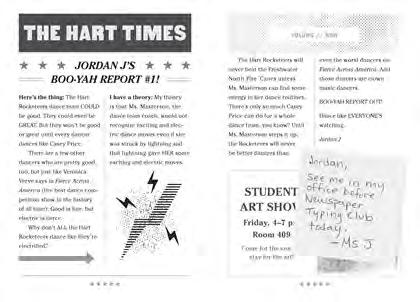 THE HART TIMES
JORDAN J'S
BOO-YAH REPORT #1!
Here's the thing: The Hart
Rocketeers dance team COULD
be good. They could even be
GREAT. But they won't be good
or great until every dancer
dances like Casey Price.
There are a few other
dancers who are pretty good,
too, but just like Veronica
Verve says in Fierce Across
America (the best dance com-
petition show in the history
of all time): Good is fine, but
electric is fierce.
Why don't ALL the Hart
Rocketeers dance like they're
electrified?
I have a theory: My theory
is that Ms. Masterson, the
dance team coach, would not
recognize exciting and elec-
tric dance moves even if she
was struck by lightning and
that lightning gave HER some
exciting and electric moves.
VOLUME 1/ NOW
The Hart Rocketeers will
never beat the Freshwater
North Fire Caves unless
Ms. Masterson can find some
energy in her dance routines.
There's only so much Casey
Price can do for a whole
dance team, you know? Until
Ms. Masterson steps it up,
the Rocketeers will never
be better dancers than
even the worst dancers on
Fierce Across America. And
those dancers are clown
music dancers.
BOO-YAH REPORT OUT!
Dance like EVERYONE'S
watching.
Jordan J
STUDENT
ART SHOW
Friday, 4–7 p
Room 409
Come for the
stay for the art!
Jordan,
see me in my
office before
Newspaper
Typing Club
today.
—Ms J